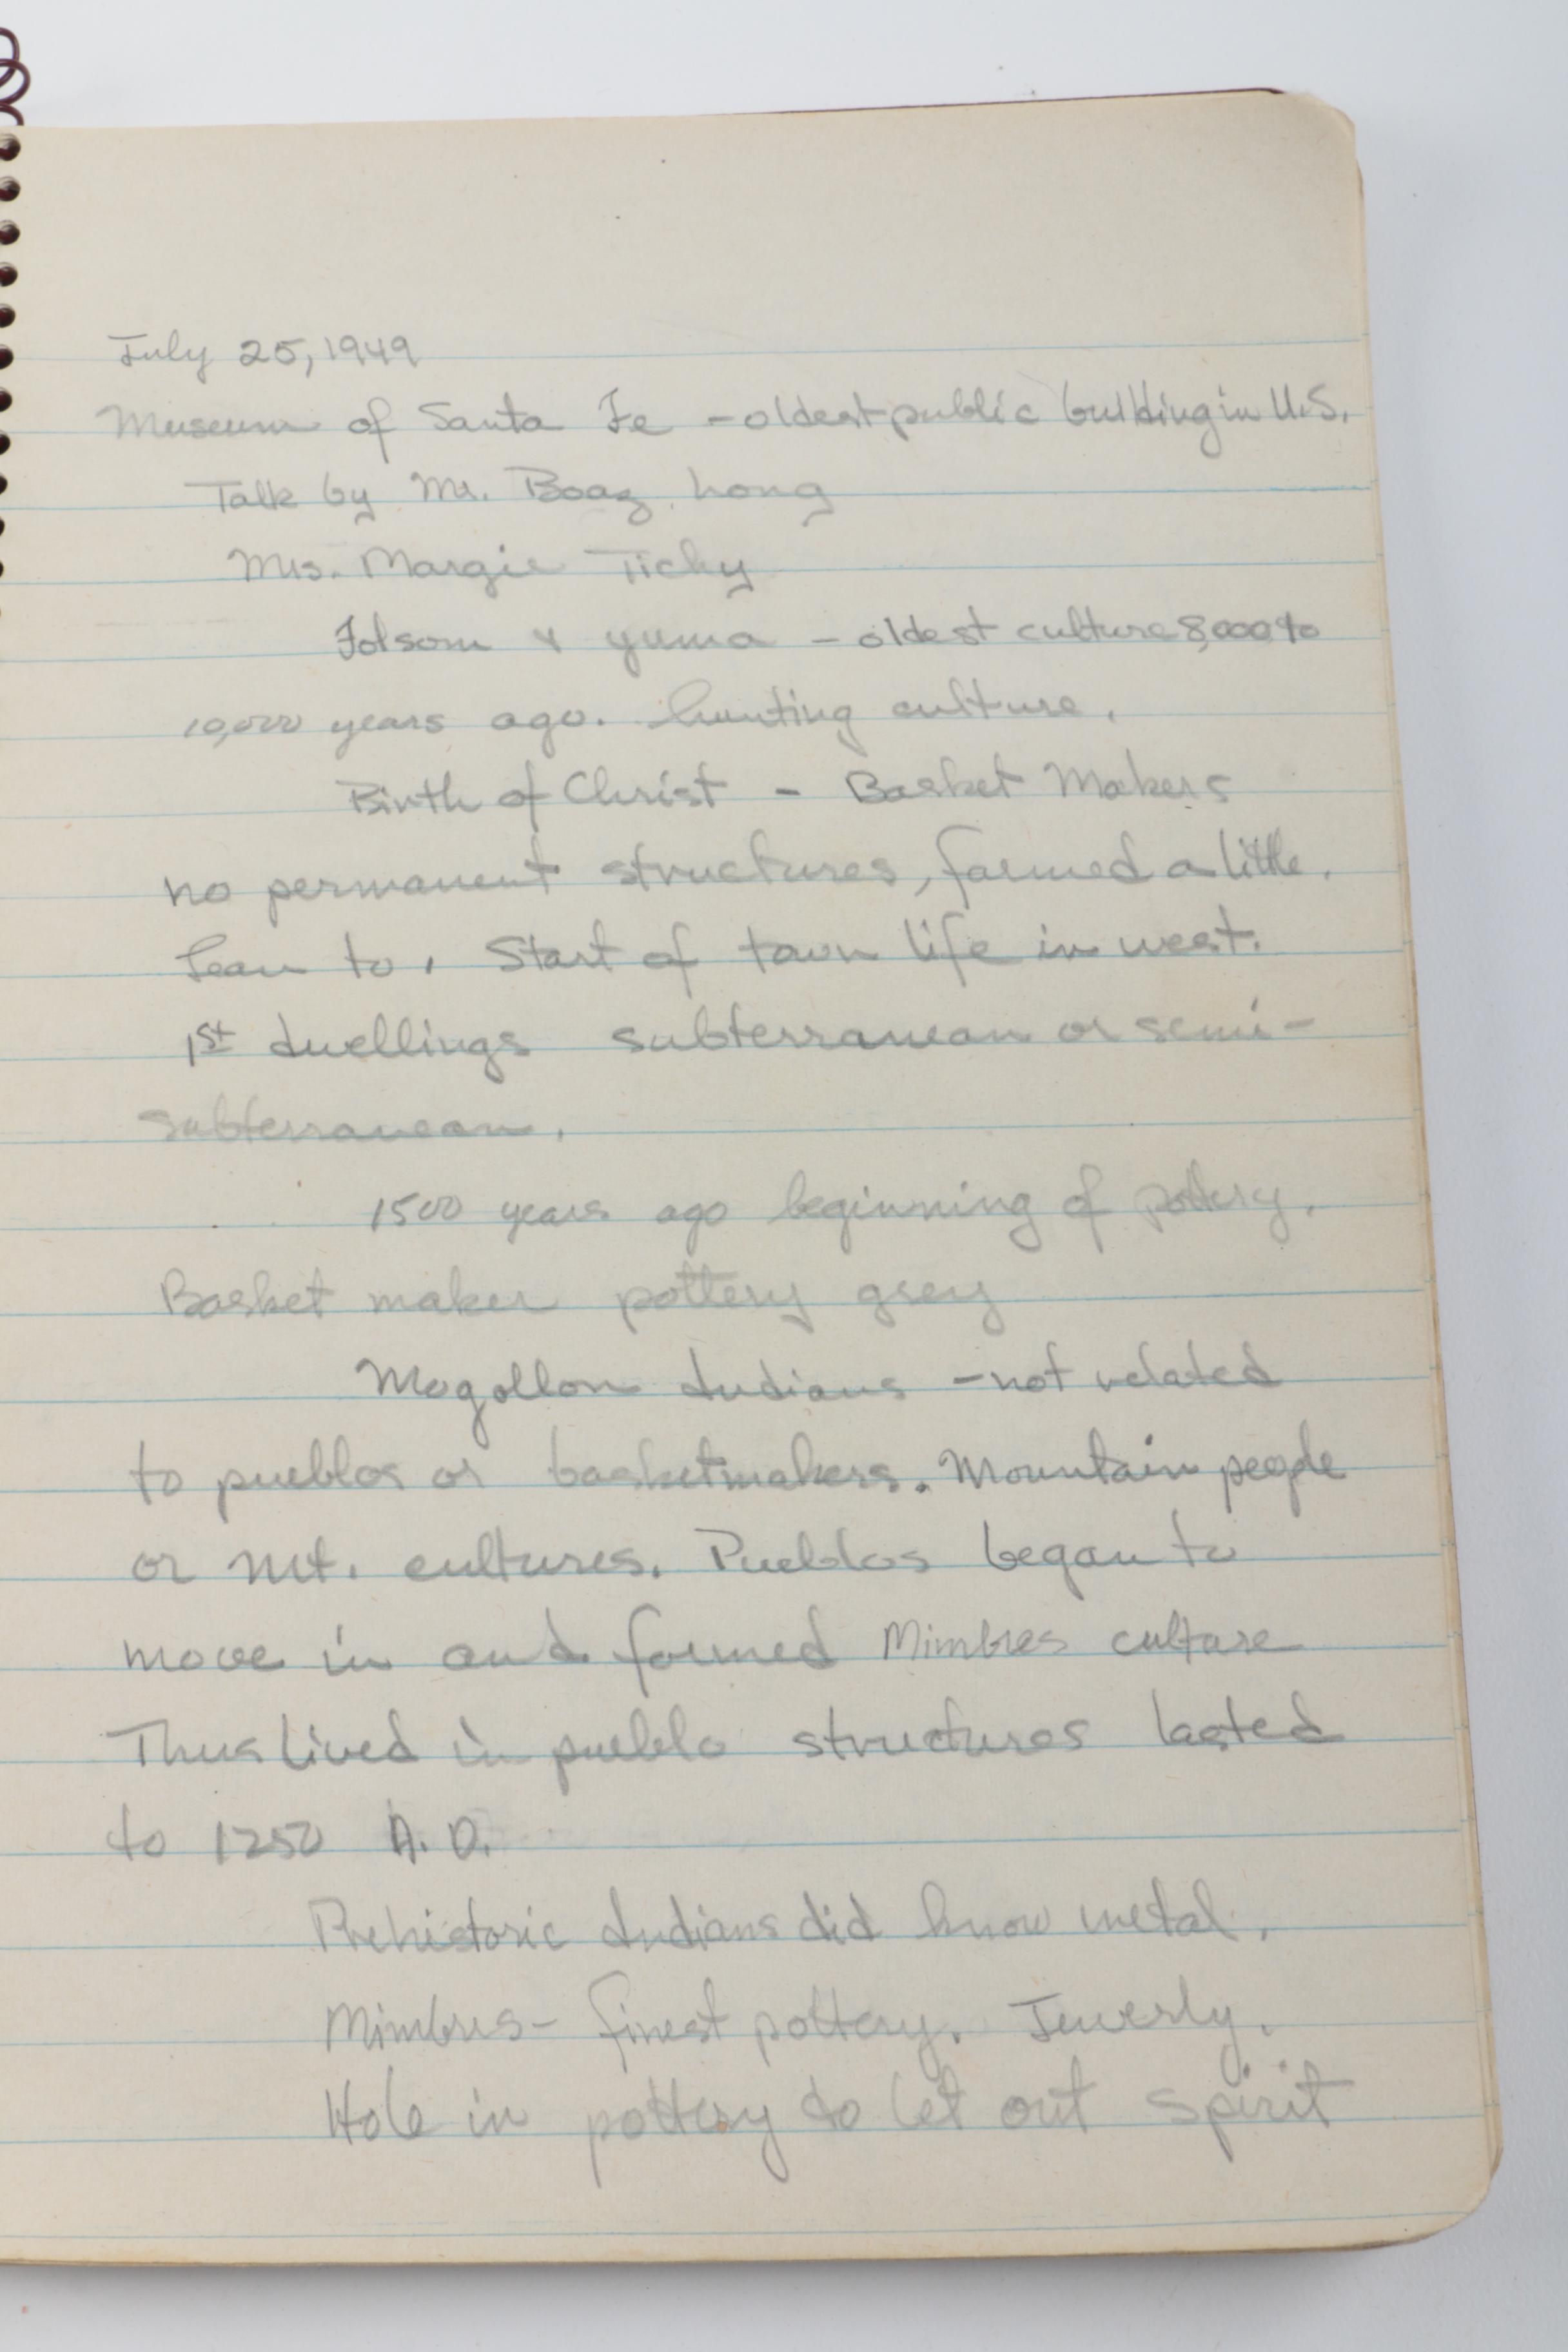 July 25, 1949
Museum of Santa Fe - oldest public building in U.S.
Talk by Mr. Boaz Long
Mrs. Margie Tichy
Folsom & Yuma - oldest culture 8,000 to
10,000 years ago. hunting culture.
Birth of Christ - Basket Makers
no permanent structures, farmed a little.
lean to. Start of town life in west.
1st dwellings subterranean or semi-
subterranean.
1500 years ago beginning of pottery.
Basket maker pottery grey
Mogollon Indians - not related
to pueblos or basketmakers. Mountain people
or Mt. cultures. Pueblos began to
move in and formed Mimbres culture
Thus lived in pueblo structures lasted
to 1250 A.D.
Prehistoric Indians did know metal.
Mimbres - finest pottery. Jewerly.
Hole in pottery to let out spirit